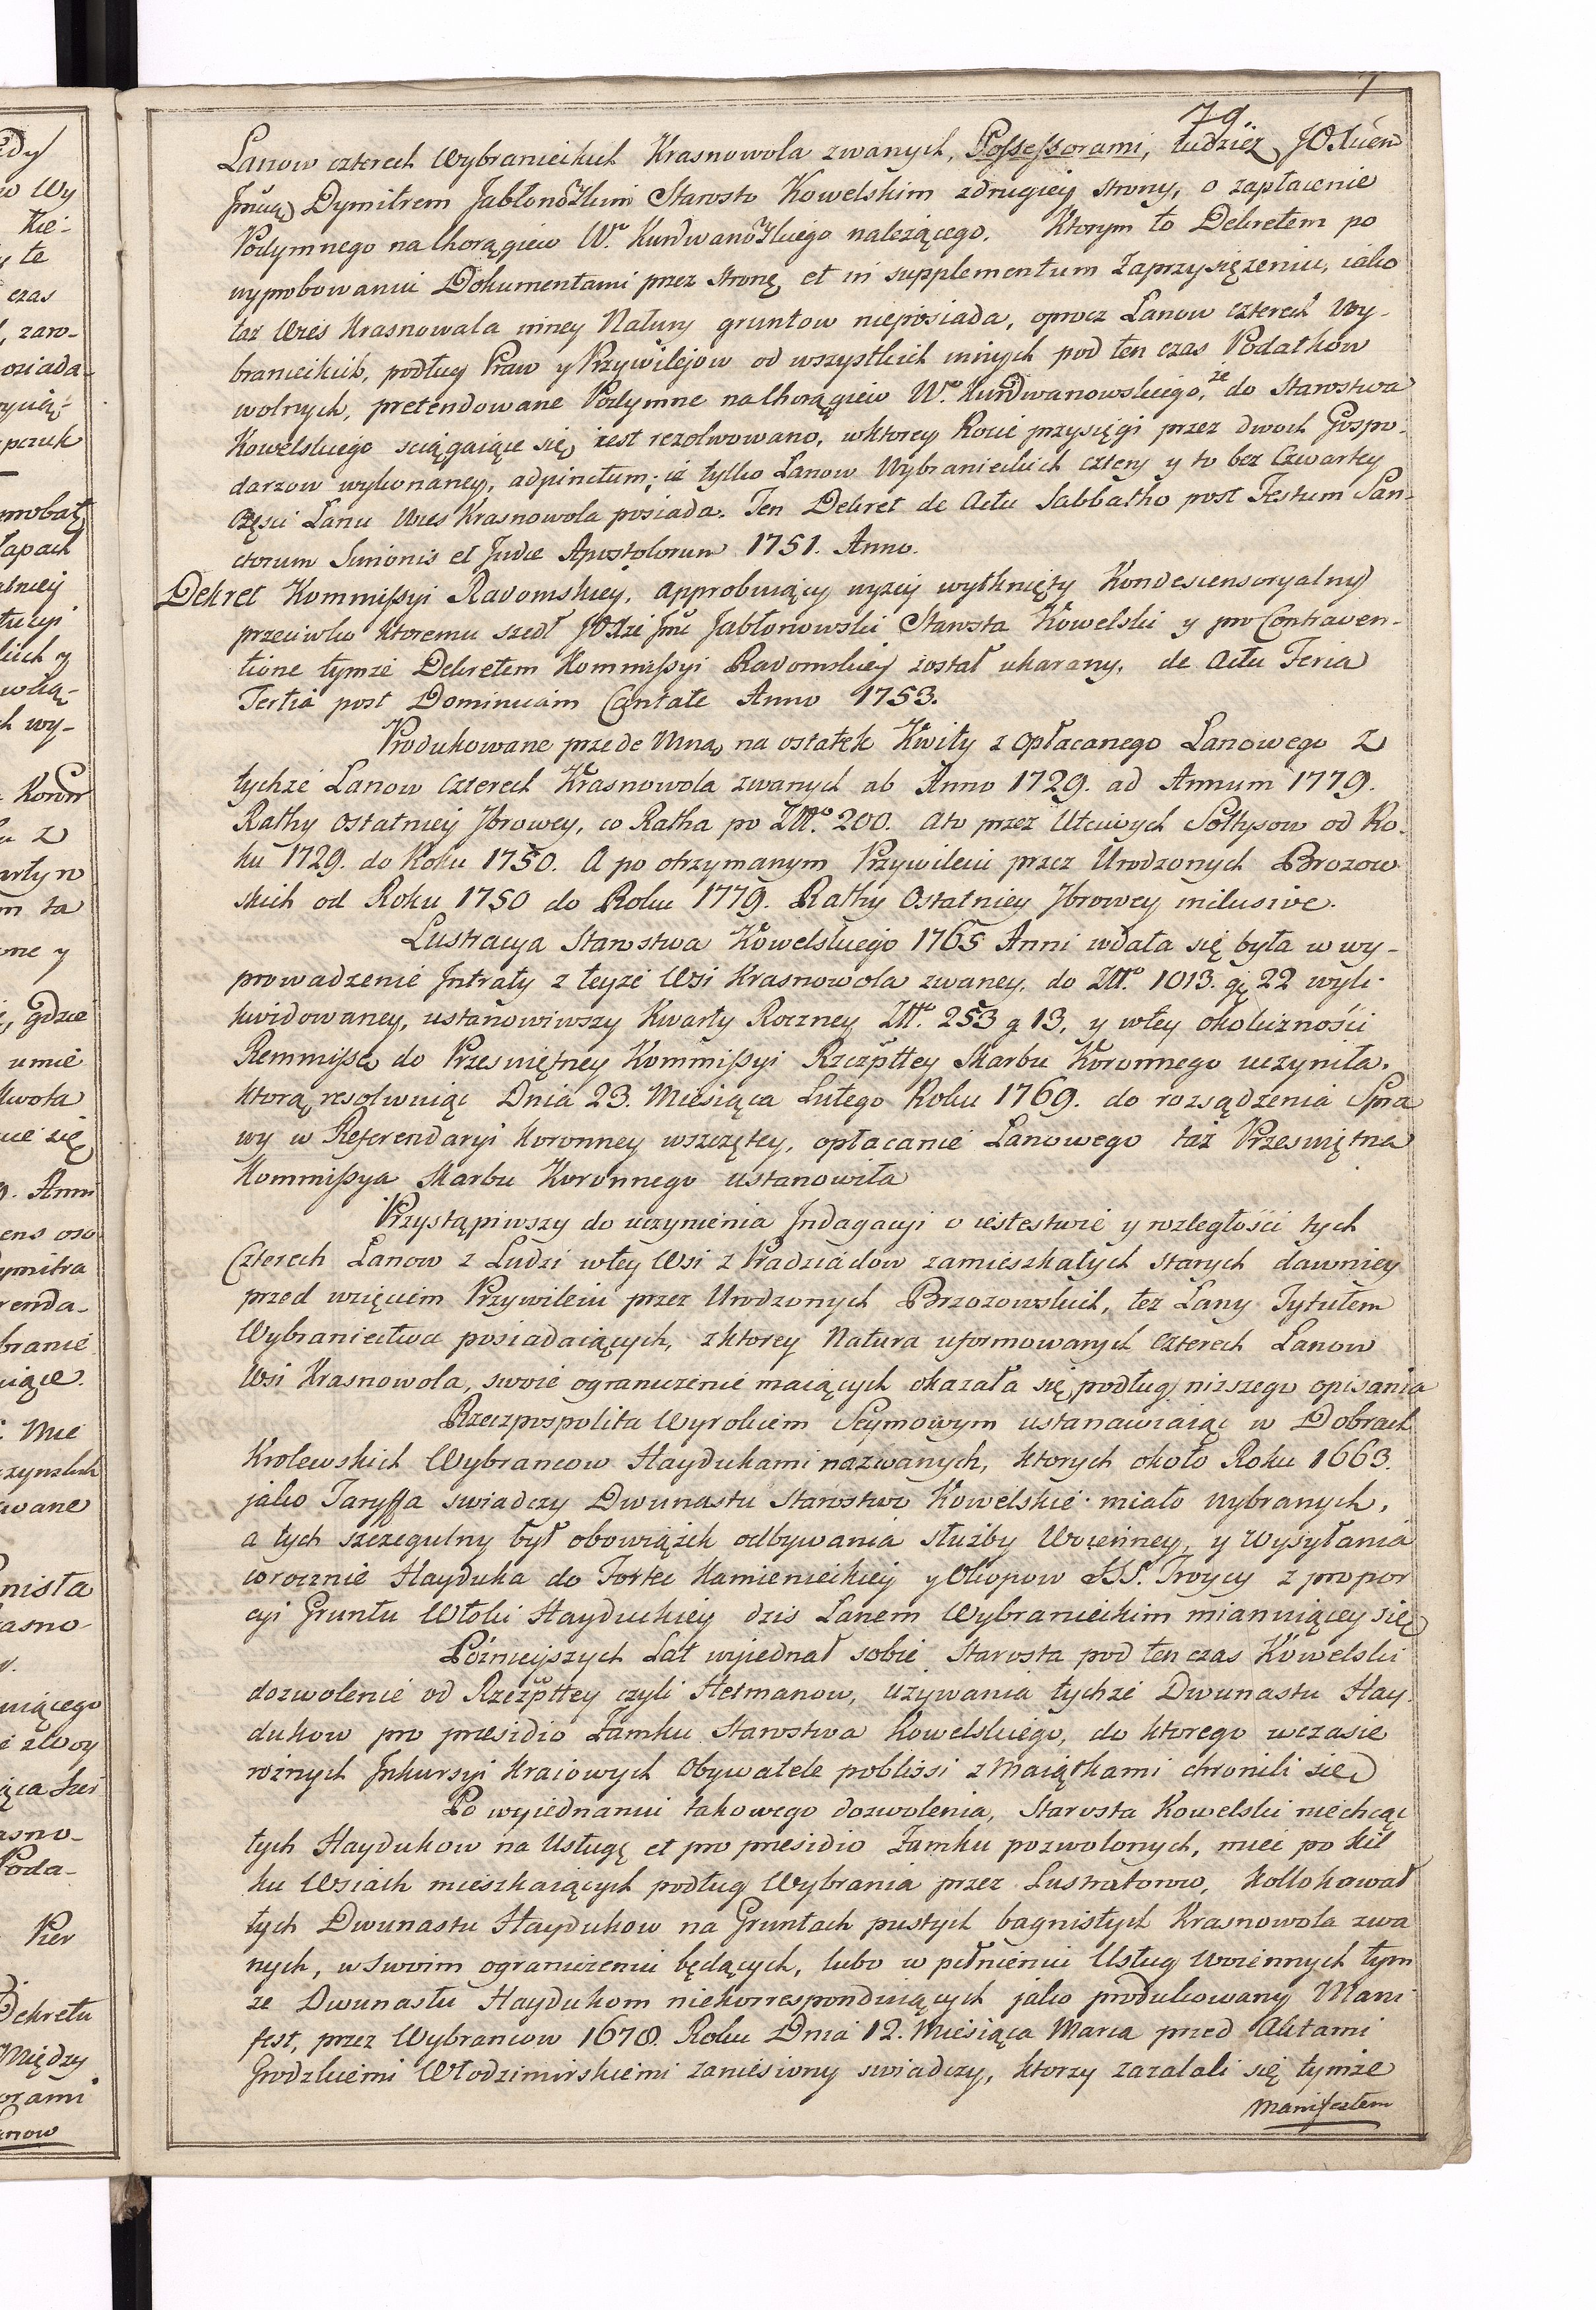 79.
Lanow czterech Wybranieckich Krasnowola zwanych, Possessorami, tudziez JO. Xciem
Jmcią Dymitrem Jabłonowskim Starostą Kowelskim zdrugiey strony, o zapłacenie
Podymnego na Chorągiew W.º Kurdwanowskiego należącego. Ktorym to Dekretem po
wyprobowaniu Dokumentami przez Stronę et in supplementum zaprzysiężeniu, iako
taż Wies Krasnowola inney Natury gruntow nieposiada, oprocz Lanow czterech Wy-
branieckich, podług Praw y Przywilejow od wszystkich innych pod ten czas Podatkow
wolnych, pretendowane Podymne na Chorągiew W.º Kurdwanowskiego, że do Starostwa
Kowelskiego sciągaiące się, iest rezolwowano, wktorey Rocie przysięgi przez dwoch Gospo-
darzow wykonaney, adjunctum; iż tylko Lanow Wybranieckich cztery y to bez Czwartey
Części Lanu Wies Krasnowola posiada. Ten Dekret de Actu Sabbatho post Festum San-
ctorum Simonis et Judæ Apostolorum 1751. Anno.
Dekret Kommissyi Radomskiey, approbuiący wyżey wytknięty Kondescensoryalny
przeciwko ktoremu szedł JO Xże Jmć Jabłonowski Starosta Kowelski y pro Contraven-
tione tymże Dekretem Kommissyi Radomskiey został ukarany, de Actu Feria
Tertia post Dominicam Cantate Anno 1753.
Produkowane przede Mną, na ostatek Kwity z Opłacanego Lanowego z
tychże Lanow czterech Krasnowola zwanych ab Anno 1729. ad Annum 1779.
Rathy Ostatniey Jbrowey, co Ratha po Złł.º 200. Ato przez Utciwych Sołtysow od Ro-
ku 1729. do Roku 1750. A po otrzymanym Przywileiu przez Urodzonych Brozow
skich od Roku 1750 do Roku 1779. Rathy Ostatniey Jbrowey inclusive.
Lustracya Starostwa Kowelskiego 1765 Anni wdała się była w wy-
prowadzenie Intraty z teyże Wsi Krasnowola zwaney, do Złł.º 1013. g. 22 wyli-
kwidowaney, ustanowiwszy Kwarty Roczney Złł.º 253 g 13, y wtey okoliczności
Remmissę do Przeswiętney Kommissyi Rzczpttey Skarbu Koronnego uczyniła.
którą rezolwuiąc Dnia 23. Miesiąca Lutego Roku 1769. do rozsądzenia Spra
wy w Referendaryi Koronney wszczętey, opłacanie Lanowego taż Przeswiętna
Kommissya Skarbu Koronnego ustanowiła
Przystąpiwszy do uczynienia Indagacyi o iestestwie y rozległości tych
Czterech Lanow z Ludzi wtey Wsi z Pradziadow zamieszkałych starych dawniey
przed wzięciem Przywileiu przez Urodzonych Brzozowskich, też Lany Tytułem
Wybraniectwa posiadaiących, zktorey Natura uformowanych czterech Lanow
Wsi Krasnowola, swoie ograniczenie maiących okazała się, podług niższego opisania
Rzeczpospolita Wyrokiem Seymowym ustanawiaiąc w Dobrach
Krolewskich Wybrancow Haydukami nazwanych, ktorych około Roku 1663.
jako Taryffa swiadczy Dwunastu Starostwo Kowelskie miało wybranych,
a tych szczegulny był obowiązek odbywania służby Woienney, y Wysyłania
corocznie Hayduka do Fortec Kamienieckiey y Okopow SS. Troycy z propor
cyi Gruntu Włoki Hayduckiey dzis Lanem Wybranieckim mianuiącey się
Późnieyszych Lat wyiednał sobie Starosta pod ten czas Kowelski
dozwolenie od Rzczpttey czyli Hetmanow, używania tychże Dwunastu Hay-
dukow pro presidio Zamku Starostwa Kowelskiego, do ktorego wczasie
rożnych Inkursyi Kraiowych Obywatele poblissi z Maiątkami chronili się
Po wyiednaniu takowego dozwolenia, Starosta Kowelski niechcąc
tych Haydukow na Usługę et pro presidio Zamku pozwolonych, miec po kil
ku Wsiach mieszkaiących podług Wybrania przez Lustratorow, kollokował
tych Dwunastu Haydukow na Gruntach pustych bagnistych Krasnowola zwa
nych, w swoim ograniczeniu będących, lubo w pełnieniu Usług woiennych tym
że Dwunastu Haydukom niekorrespondiuiących jako produkowany Mani
fest, przez Wybrancow 1678. Roku Dnia 12. Miesiąca Marca przed Aktami
Grodzkiemi Włodzimirskiemi zaniesiony swiadczy, ktorzy zażalali się tymże
Manifestem